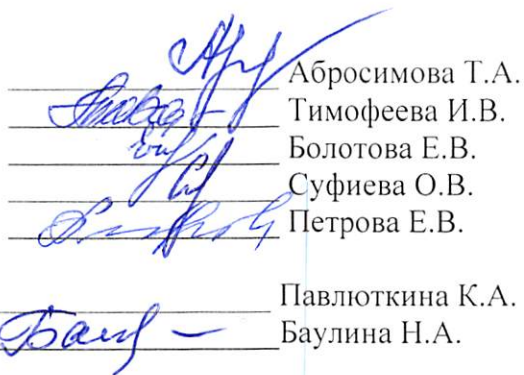 Абросимова Т.А.
Тимофеева И.В.
Болотова Е.В.
Суфиева О.В.
Петрова Е.В.
Павлюткина К.А.
Баулина Н.А.